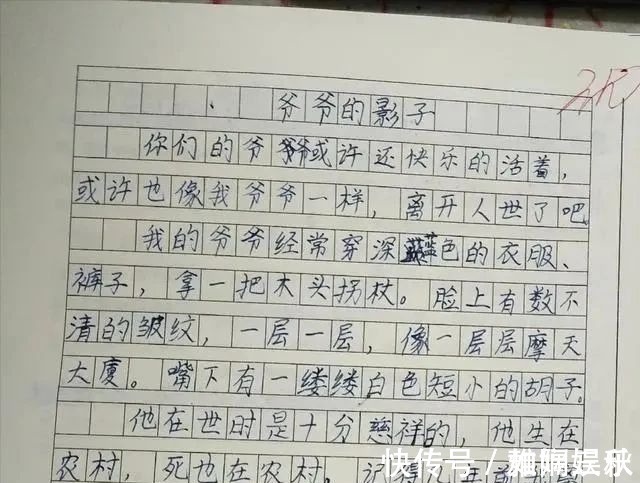 爷爷的影子
你们的爷爷或许还快乐的活着，
或许也像我爷爷一样，离开人世了吧
我的爷爷经常穿深蓝色的衣服、
裤子，拿一把木头拐杖。脸上有数不
清的皱纹，一层一层，像一层层摩天
大厦。嘴下有一缕缕白色短小的胡子。
他在世时是十分慈祥的，他生在
农村，死也在农村。记得几年前
快传号/